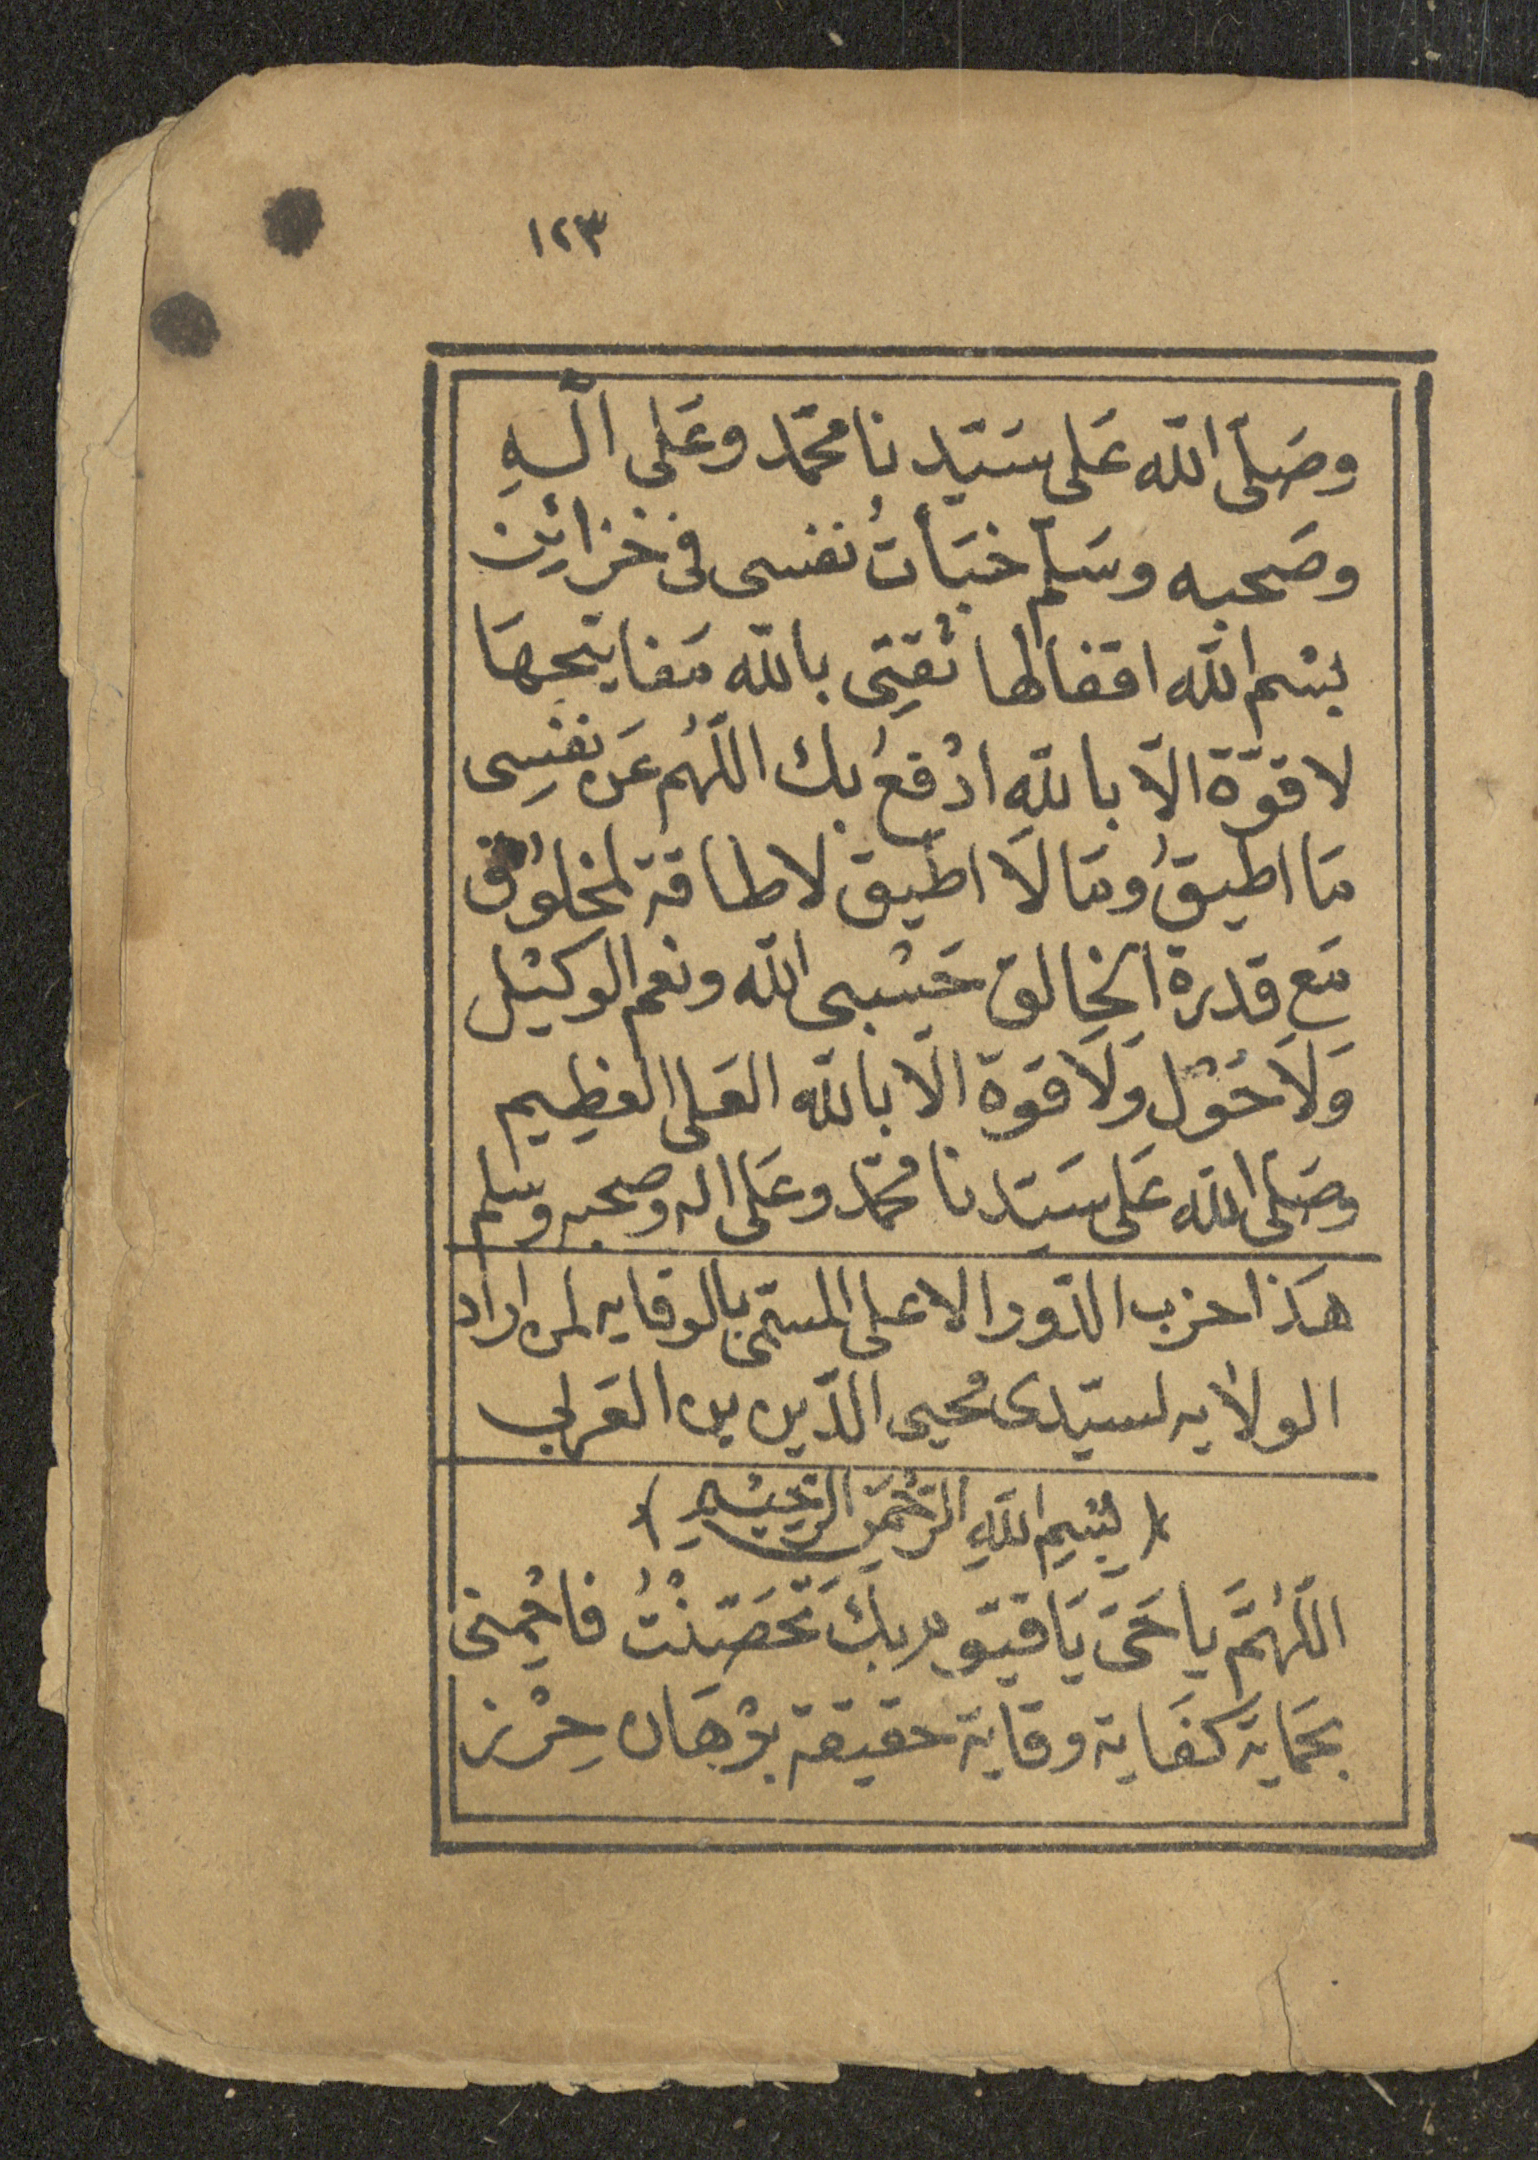 ١٢٣
وصَلّى الله عَلى سَيّدنا محمّد وعَلى الِهِ
وصَحبه وسَلّم خبَأتُ نفسى فى خزائِن
بسْم الله اقفالها ثقتِى بالله مَفاتِحهَا
لا قوّة الّا باللهِ ادْفعُ بك اللّهُم عَن نفسِى
مَا اطيقُ ومَا لَا اطيق لا طاقة لمخلوُق
مَع قدرة الخالق حَسْبى الله ونعم الوكيْل
وَلَا حَوْل وَلَا قوة الّا بالله العَلى العظِيم
وصَلى الله عَلى سَيّدنا محمّد وعَلى اله وصحبه وسلم
هَذا حزب الدّور الاعلى المسمّى بالوقايه لمن اراد
الولايه لسيّدى محيى الدّين بن العَربى
﴿ بِسْمِ اللهِ الرَّحْمَنِ الرَّحِيْمِ ﴾
اللّهُمَّ يا حَى يَا قيّوم بكَ تَحَصّنْتُ فاحْمِنى
بحَماية كفَاية وقاية حقيقة برْهَان حِرْز